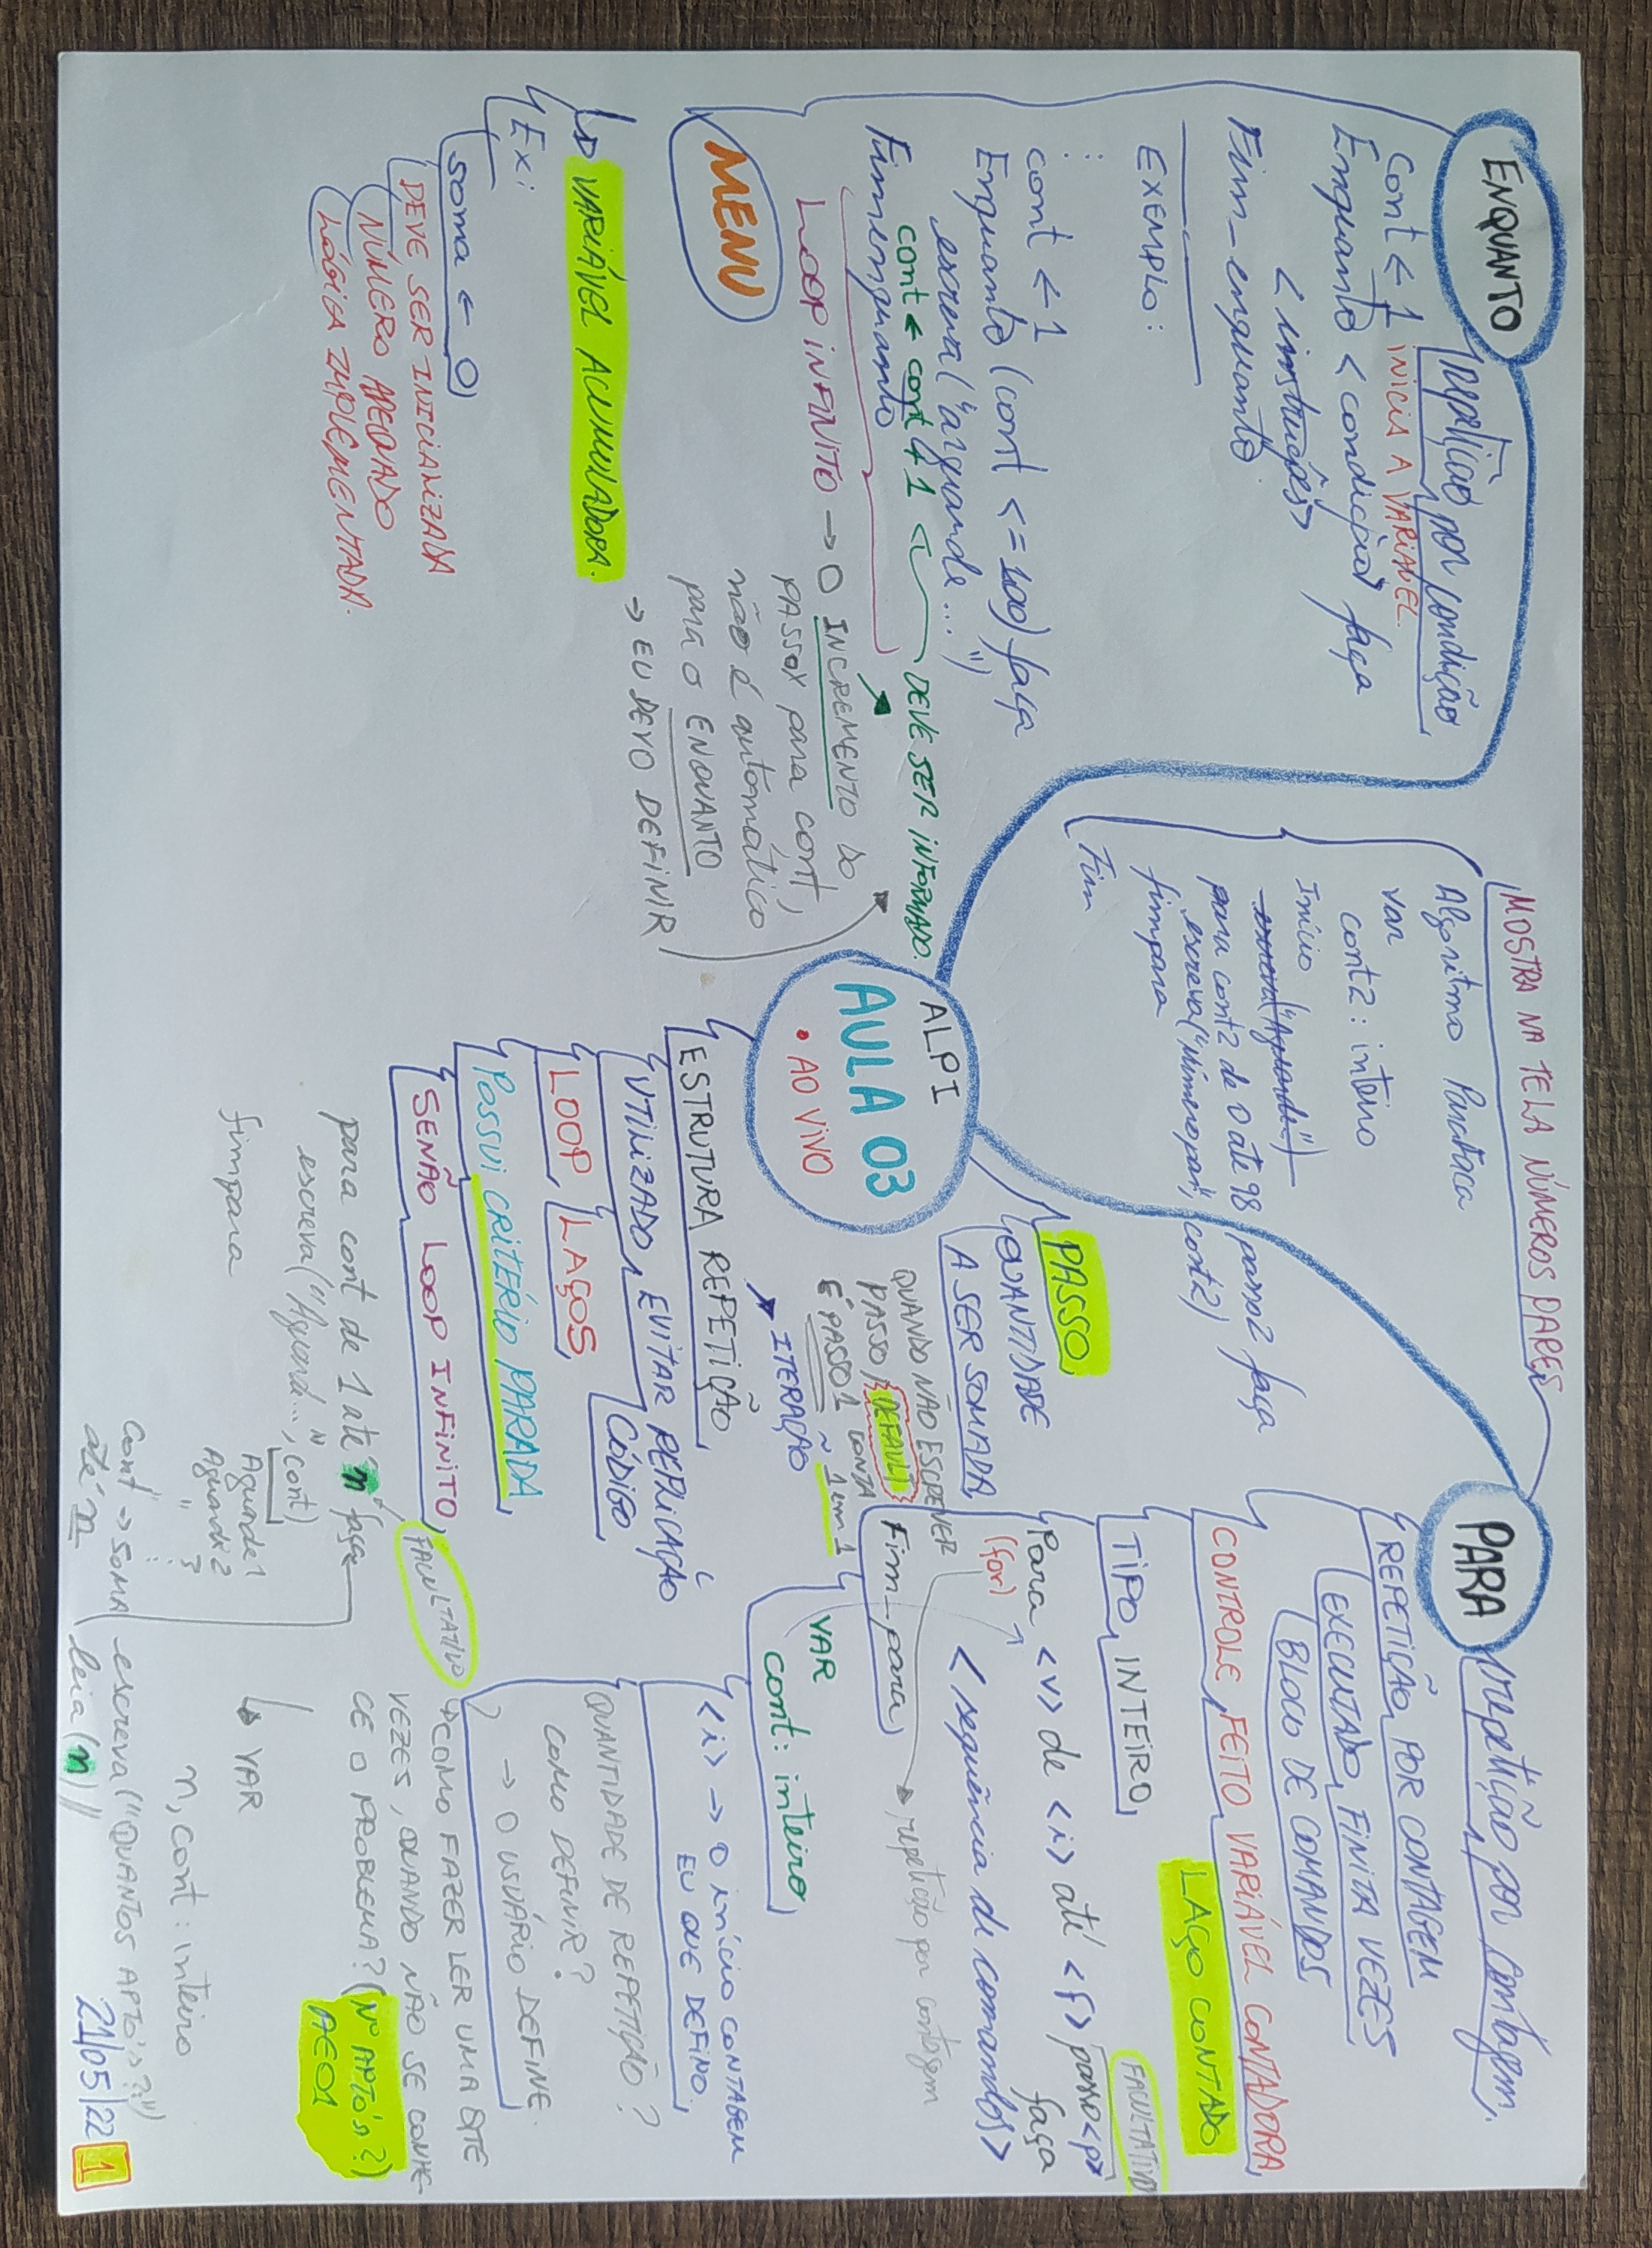 ENQUANTO
repetição por condição
Cont ← 1 INICIA A VARIÁVEL.
Enquanto <condição> faça
<instruções>
Fim_enquanto
EXEMPLO:
:
:
cont ← 1
Enquanto (cont <= 100) faça
escreva("arguande...")
cont ← cont + 1 ← DEVE SER INFORMADO.
Fimenquanto
LOOP INFINITO → O INCREMENTO DO
PASSOX para cont,
não é automático
para o ENQUANTO
→ EU DEVO DEFINIR
MENU
VARIÁVEL ACUMULADORA.
Ex:
soma ← 0
DEVE SER INICIALIZADA
NÚMERO ADEQUADO
LÓGICA IMPLEMENTADA.
MOSTRA NA TELA NÚMEROS PARES
Algoritmo ParaFaca
var
cont2 : inteiro
Início
escreva("Aguarde")
para cont2 de 0 até 98 passo2 faça
escreva("Número par", cont2)
fimpara
Fim
ALPI
AULA 03
• AO VIVO
PASSO
QUANTIDADE
A SER SOMADA
QUANDO NÃO ESCREVER
PASSO, DEFAULT
É PASSO 1 CONTA
1 em 1
ITERAÇÃO
ESTRUTURA REPETIÇÃO
UTILIZADO EVITAR REPLICAÇÃO
CÓDIGO
LOOP LAÇOS
POSSUI CRITÉRIO PARADA
SENÃO LOOP INFINITO
FACULTATIVO
para cont de 1 até n faça
escreva("Aguarde...", cont)
fimpara
Aguarde 1
Aguarde 2
" 3
" :
Cont → SOMA
até n
PARA
repetição por contagem
REPETIÇÃO POR CONTAGEM
EXECUTADO FINITA VEZES
BLOCO DE COMANDOS
CONTROLE FEITO VARIÁVEL CONTADORA
LAÇO CONTADO
TIPO INTEIRO
FACULTATIVO
Para <v> de <i> até <f> passo <p>
faça
(for)
<sequência de comandos>
repetição por contagem
Fim_para
VAR
cont: inteiro
<i> → O início CONTAGEM
EU QUE DEFINO.
QUANTIDADE DE REPETIÇÃO?
COMO DEFINIR?
→ O USUÁRIO DEFINE.
COMO FAZER LER UMA QTE
VEZES, QUANDO NÃO SE CONHE-
CE O PROBLEMA? (Nº APTO's?)
AE01
VAR
n, cont : inteiro
escreva("QUANTOS APTO's?:")
leia (n) //
21/05/22 1